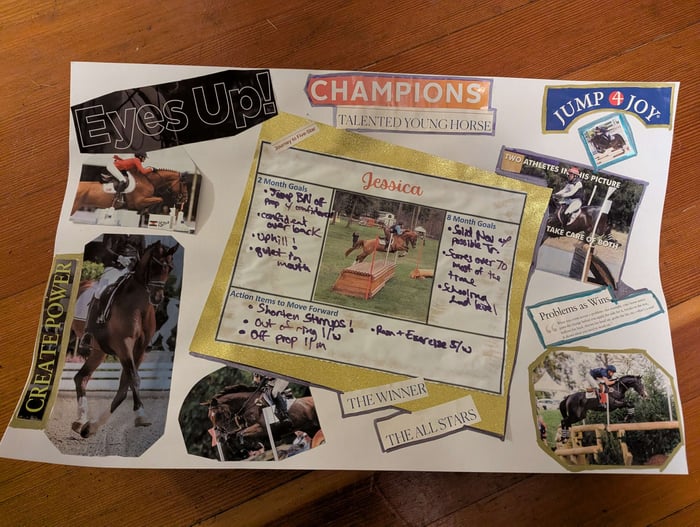 Eyes Up!
CHAMPIONS
TALENTED YOUNG HORSE
JUMP 4 JOY
Journey to Five Star
Jessica
2 Month Goals
• Jump BN off
prop w/ confidence
• confident
over back
• Uphill!
• quiet in
mouth
8 Month Goals
• Solid Nov if
possible
• Scores over 70
most of the
time
• Schooling
next level
Action Items to Move Forward
• Shorten Stirrups!
• Out of ring 1/w
• Off prop
• Run + Exercise 5/w
TWO ATHLETES IN THIS PICTURE
TAKE CARE OF BOTH
Problems as Wins
CREATE POWER
THE WINNER
THE ALL STARS